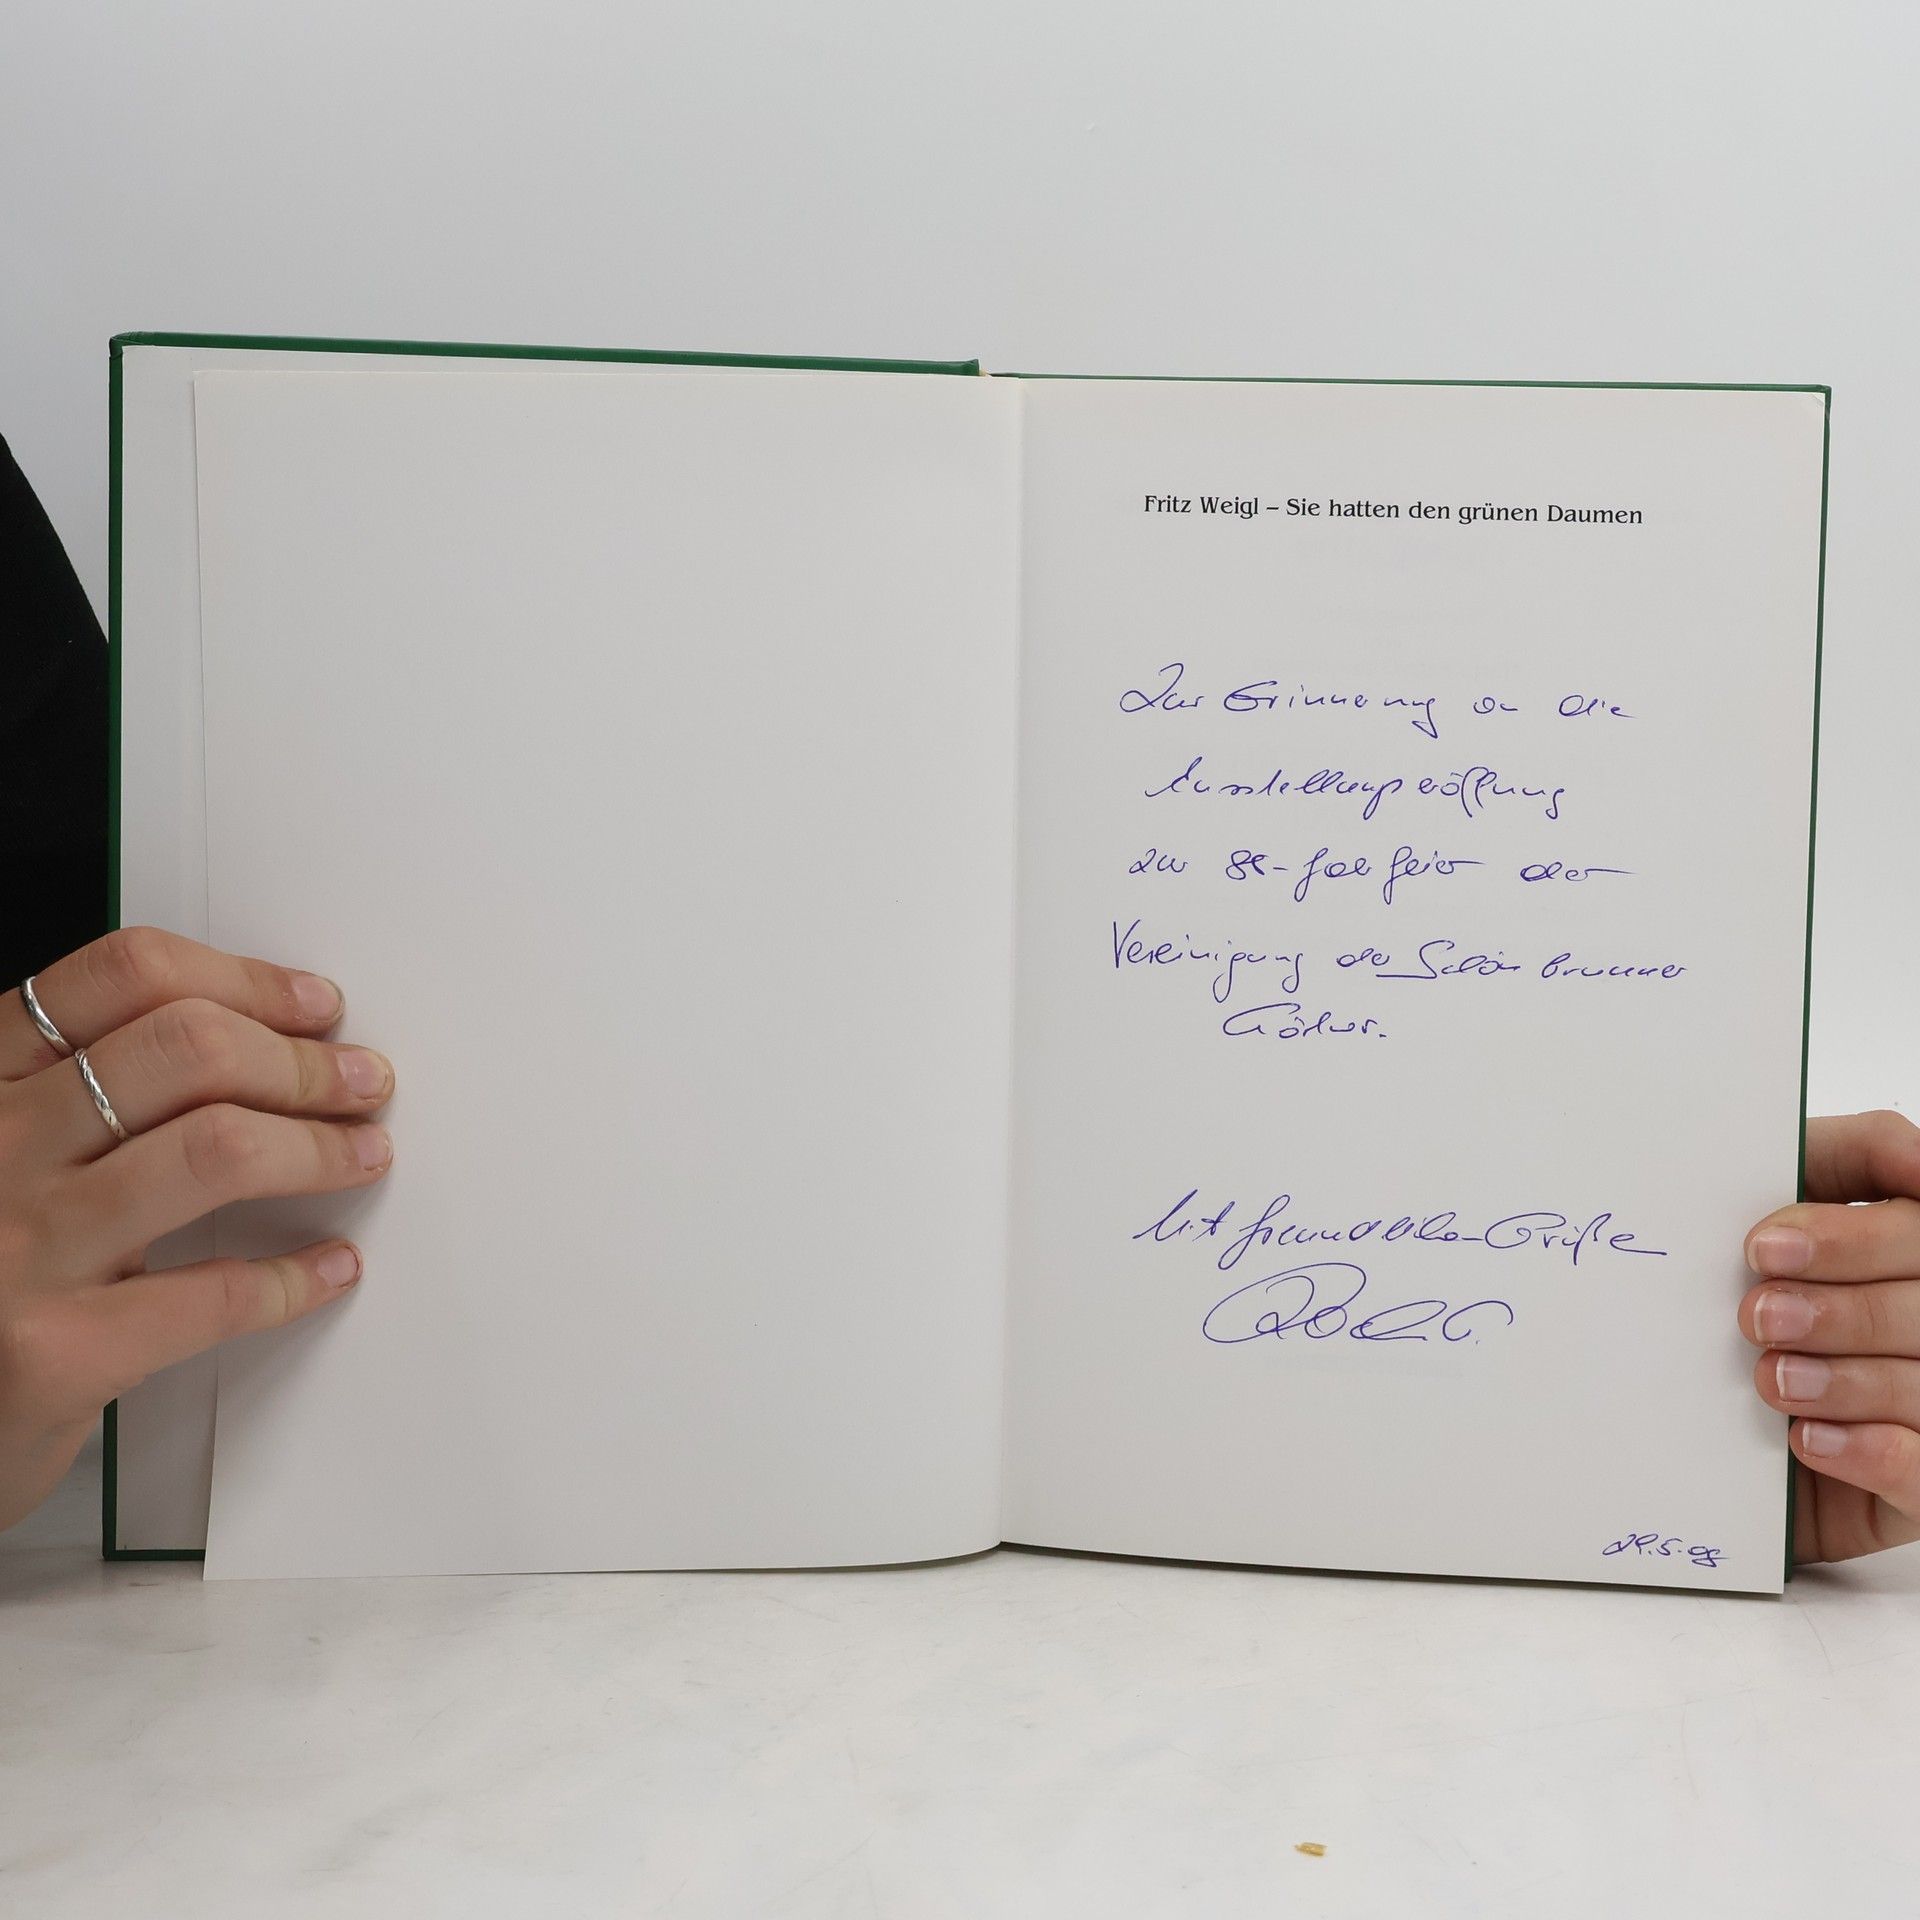 Fritz Weigl – Sie hatten den grünen Daumen
Zur Erinnerung an die
Ausstellungseröffnung
zur Jahrfeier der
Vereinigung der Schönbrunner
Gärtner.
Mit freundlichen Grüße
29.5.98